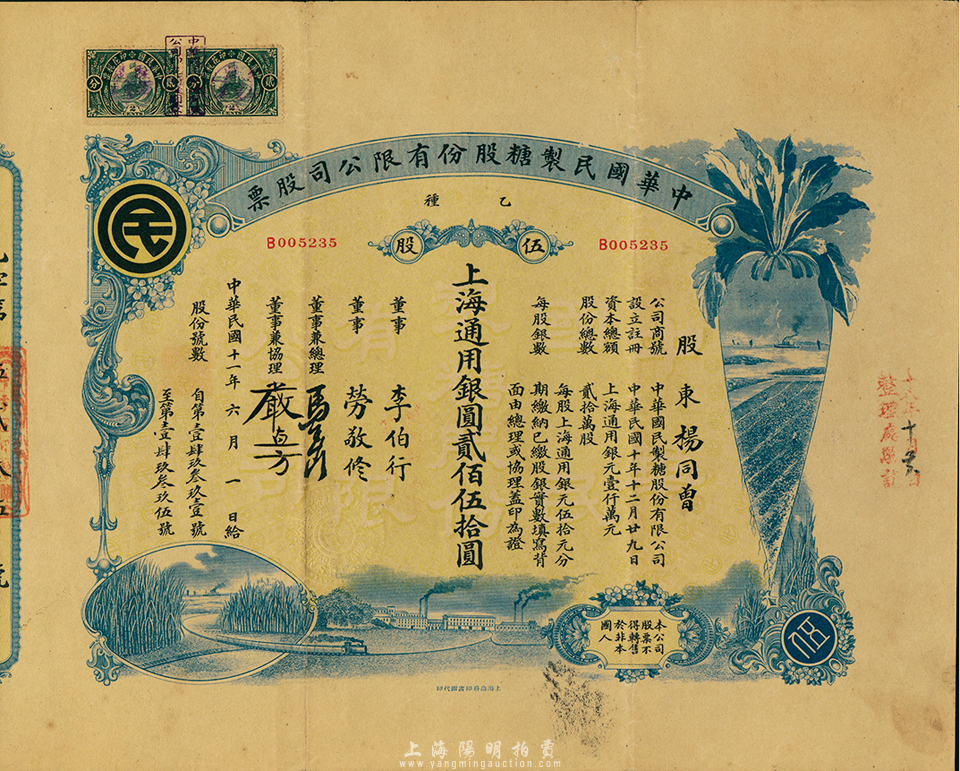 中華國民製糖股份有限公司股票
乙種
伍股
B005235
B005235
股東 楊同曾
公司商號 中華國民製糖股份有限公司
設立註冊 中華民國十年十二月廿九日
資本總額 上海通用銀元壹仟萬元
股份總數 貳拾萬股
每股銀數 每股上海通用銀元伍拾元分
期繳納已繳股銀實數填寫背
面由總理或協理蓋印為證
上海通用銀圓貳佰伍拾圓
董事 李伯行
董事 勞敬修
董事兼總理
董事兼協理
中華民國十一年六月一日給
股份號數 自第壹肆玖叁玖壹號
至第壹肆玖叁玖伍號
本公司
股票不
得轉售
於非本
國人
民
上海商務印書館代印
整理處
上海陽明拍賣
www.yangmingauction.com